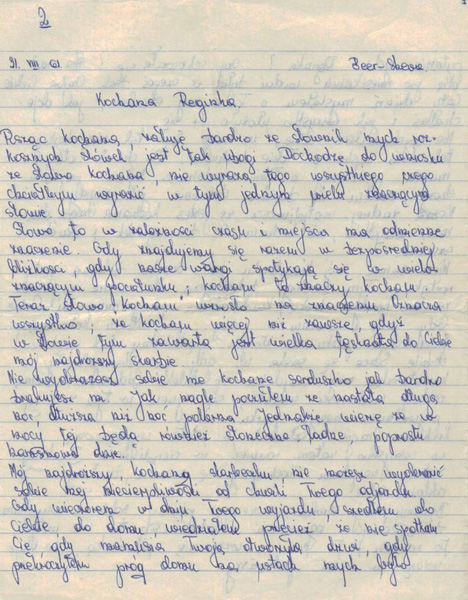 2
21. VIII. 61 Beer-Sheewa.
Kochana Reginka.
Pisząc kochana, żałuję bardzo że słownik mych roz-
kosznych słówek jest tak ubogi. Dochodzę do wniosku
że słowo kochana, nie wyraża tego wszystkiego czego
chciałbym wyrazić w tym jednym wiele znaczącym
słowie.
Słowo to w zależności czasu i miejsca ma odmienne
znaczenie. Gdy znajdujemy się razem w bezpośredniej
bliskości, gdy nasze wargi spotykają się w wiele
znaczącym pocałunku; kocham to znaczy kocham.
Teraz słowo "Kocham" wzrosło na znaczeniu. Oznacza
wszystko; że kocham więcej niż zawsze, gdyż
w słowie tym zawarta jest wielka tęsknota do Ciebie
mój najdroższy skarbie.
Nie wyobrażasz sobie me kochane serduszko jak bardzo
brakujesz mi. Jak nagle poczułem że nastała długa
noc, dłuższa niż noc polarna. Jednakże wierzę że w
nocy tej będą również słoneczne, ładne, poprostu
kolorowe dnie.
Mój najdroższy, kochany skarbeńku, nie możesz wyobrazić
sobie mej niecierpliwości od chwili Twego odjazdu.
Gdy wieczorem w dniu Twego wyjazdu, szedłem do
Ciebie, do domu, wiedziałem przecież że nie spotkam
Cię, gdy mamusia Twoja otworzyła drzwi, gdy
przekroczyłem próg domu na ustach mych było